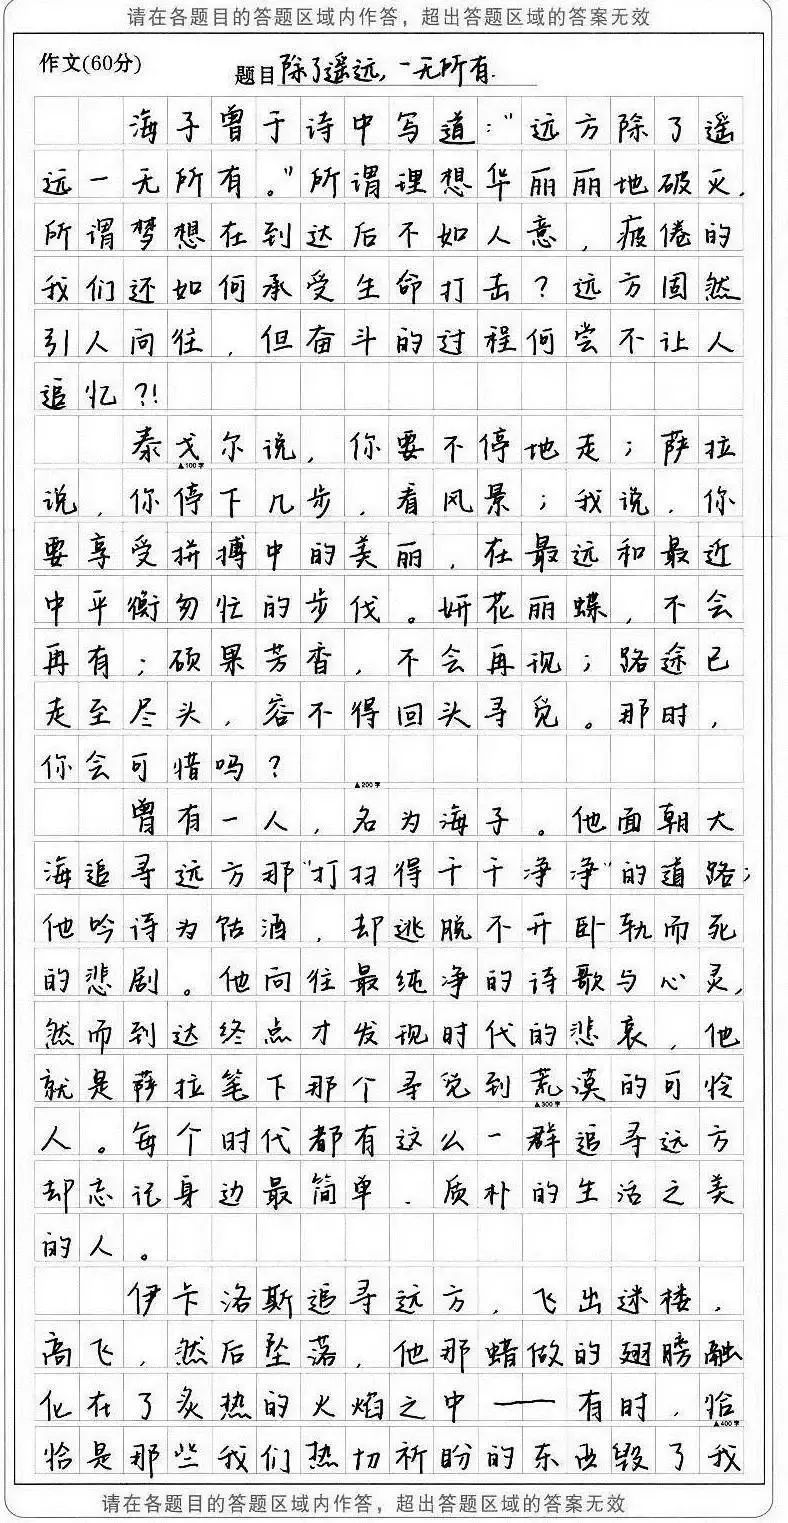 请在各题目的答题区域内作答，超出答题区域的答案无效
作文(60分)
题目除了遥远，一无所有.
海子曾于诗中写道："远方除了遥
远一无所有。"所谓理想华丽丽地破灭，
所谓梦想在到达后不如人意，疲倦的
我们还如何承受生命打击？远方固然
引人向往，但奋斗的过程何尝不让人
追忆?!
泰戈尔说，你要不停地走；萨拉
▲100字
说，你停下几步，看风景；我说，你
要享受拼搏中的美丽，在最远和最近
中平衡匆忙的步伐。妍花丽蝶，不会
再有；硕果芳香，不会再现；路途已
走至尽头，容不得回头寻觅。那时，
你会可惜吗？
▲200字
曾有一人，名为海子。他面朝大
海追寻远方那"打扫得干干净净"的道路；
他吟诗为酤酒，却逃脱不开卧轨而死
的悲剧。他向往最纯净的诗歌与心灵，
然而到达终点才发现时代的悲哀，他
就是萨拉笔下那个寻觅到荒漠的可怜
▲300字
人。每个时代都有这么一群追寻远方
却忘记身边最简单、质朴的生活之美
的人。
伊卡洛斯追寻远方，飞出迷楼，
高飞，然后坠落，他那蜡做的翅膀融
化在了炙热的火焰之中——有时，恰
▲400字
恰是那些我们热切祈盼的东西毁了我
请在各题目的答题区域内作答，超出答题区域的答案无效